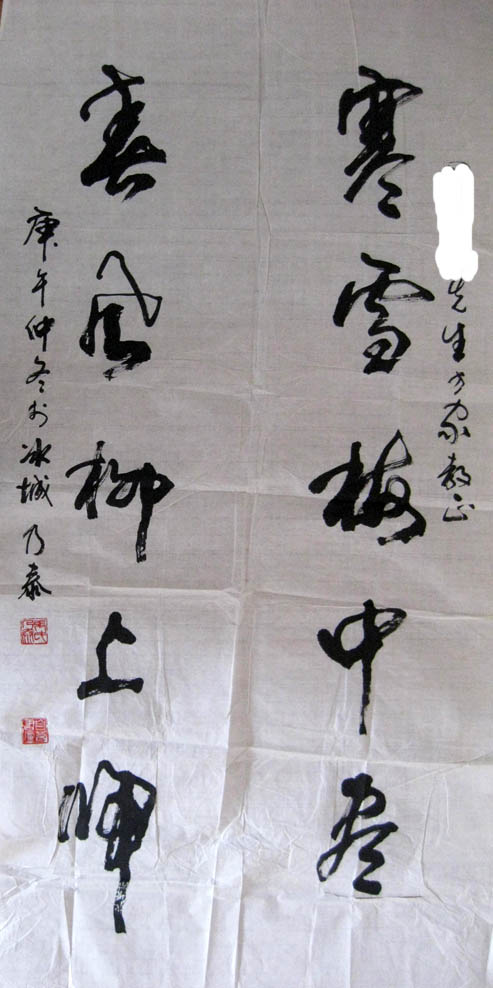 先生方家教正
寒雪梅中尽
春風柳上歸
庚午仲冬於冰城 乃泰